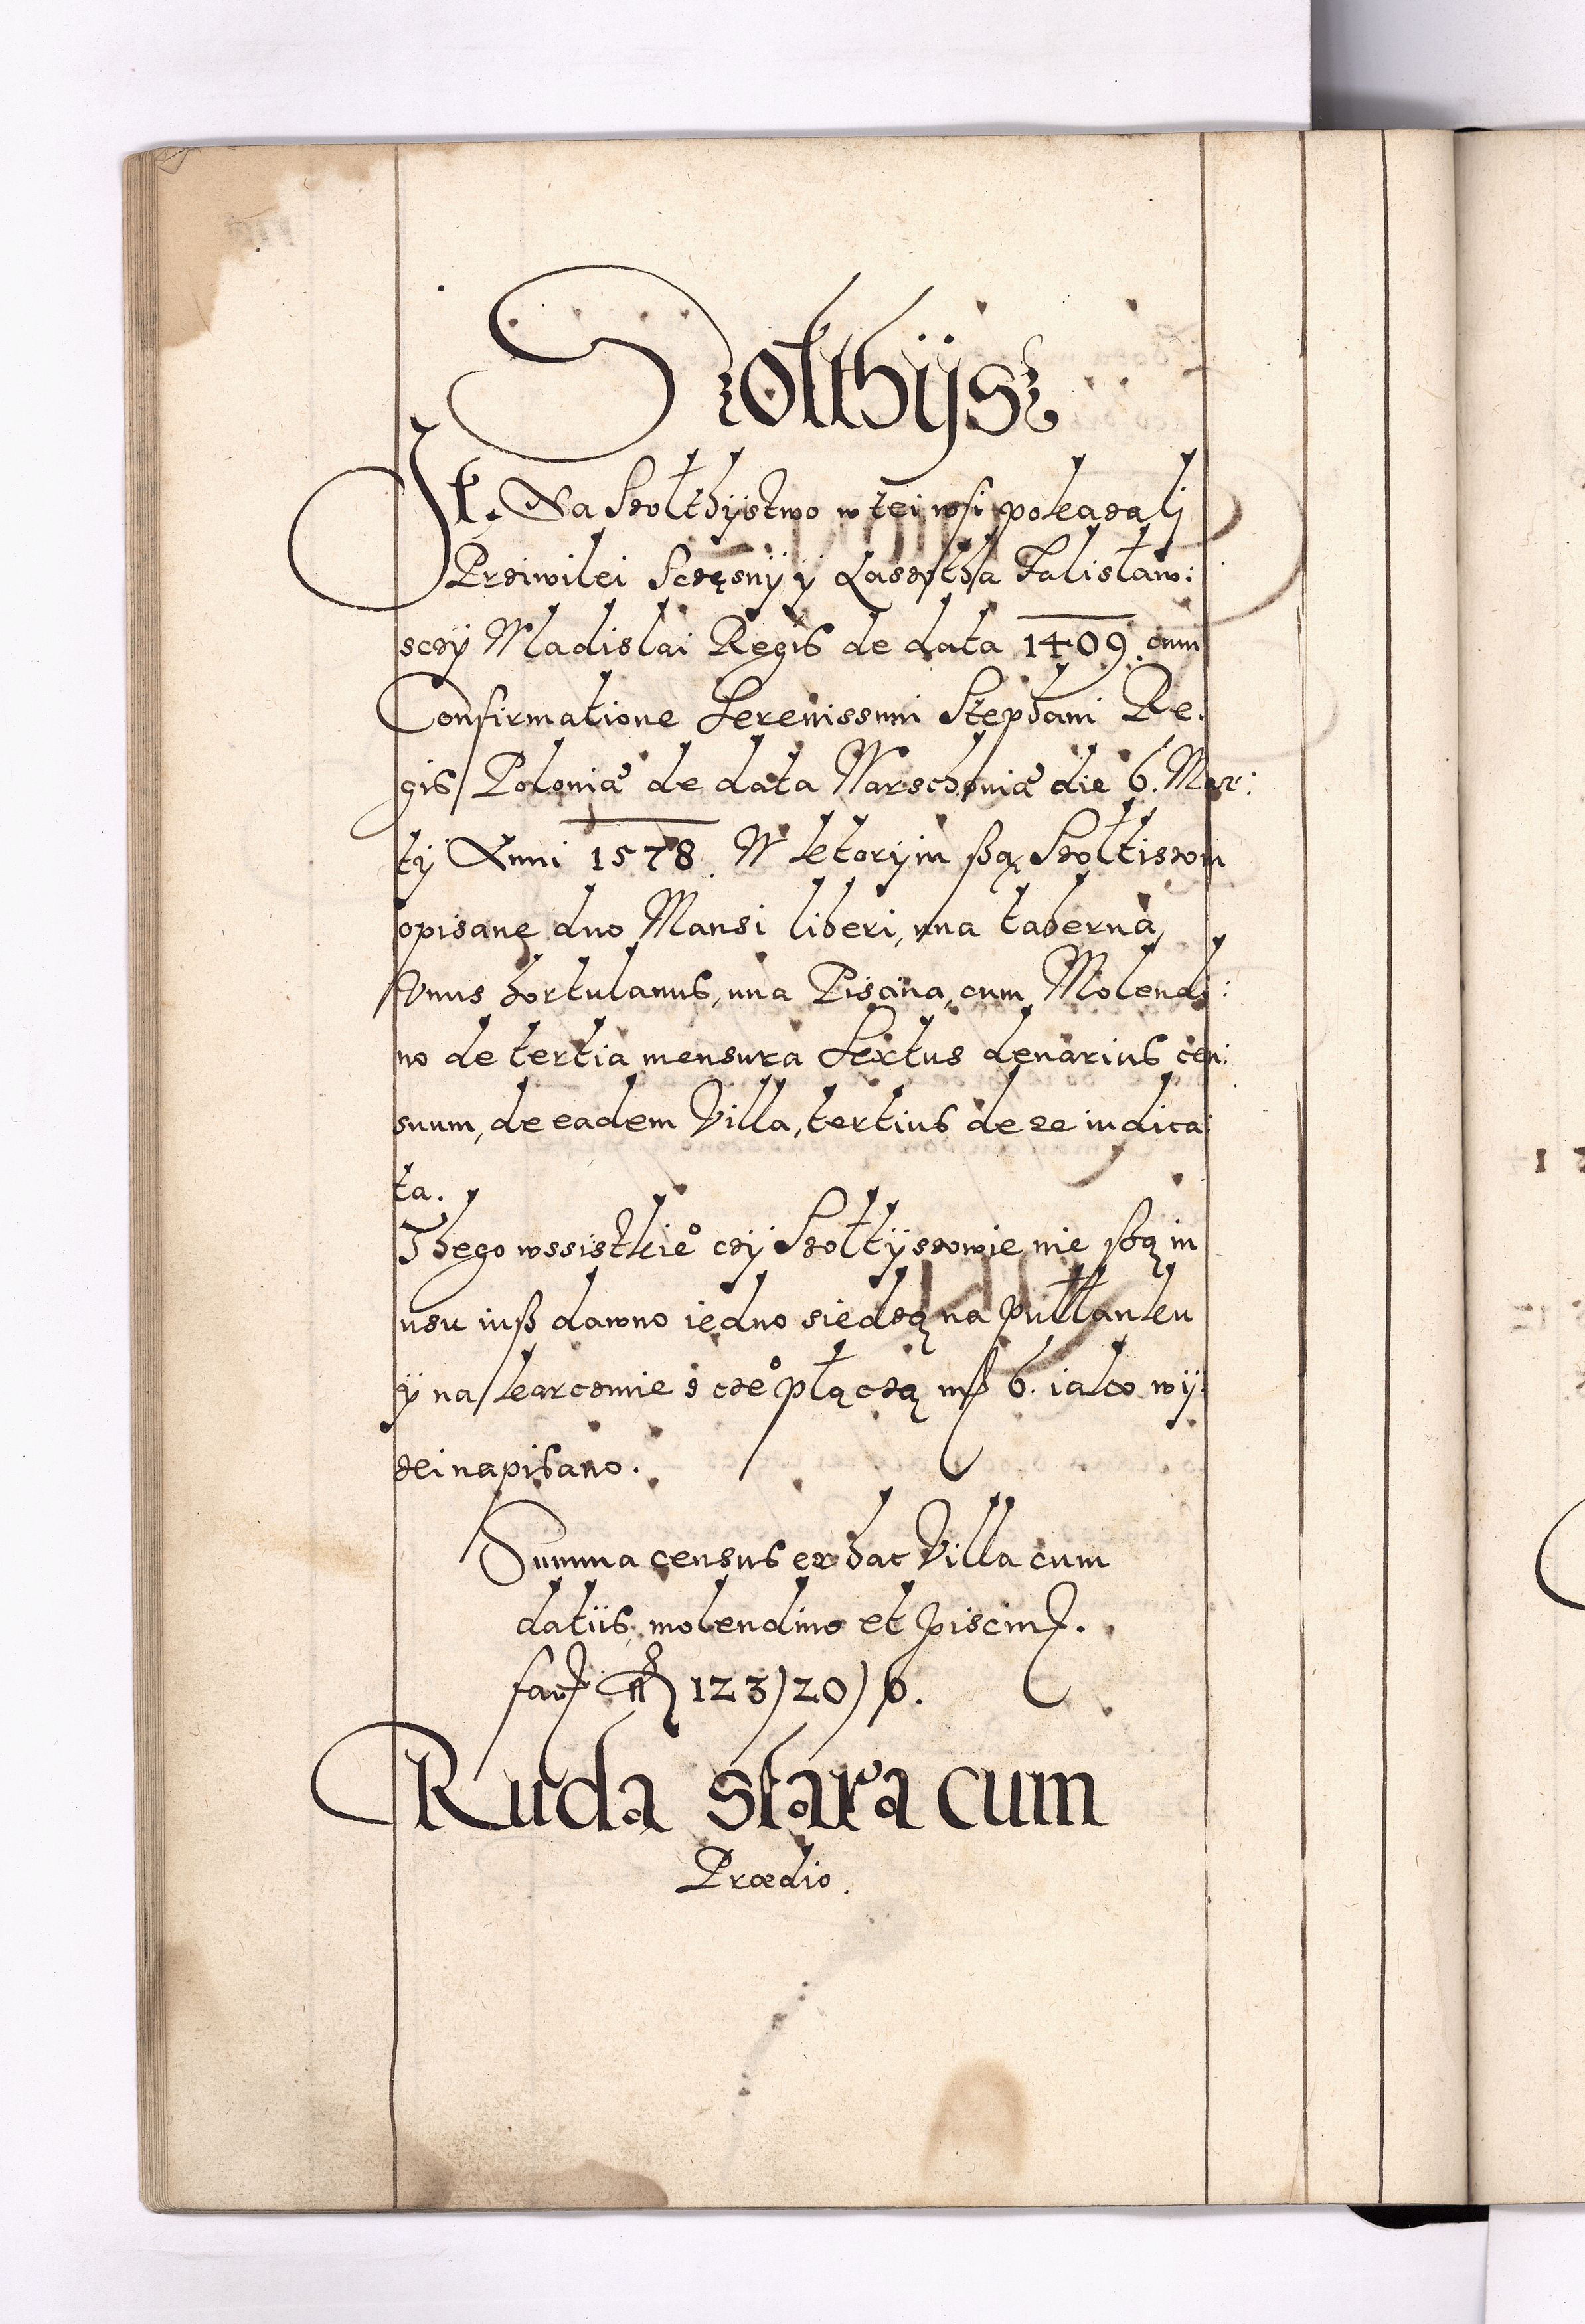 Szolthijsz
It. Na Szolthijstwo w tei wsi pokazali
Prziwilei Sczęsnij y Laszchta Falisław:
sczij Wladislai Regis de data 1409. cum
Confirmatione Serenissimi Stephani Re.
gis Poloniæ de data Warschoviæ die 6. Mar:
tij Anni 1578. W ktorijm ßą Szołtiszom
opisane duo Mansi liberi, una taberna,
Vnus hortulanus, una Piscina, cum Molendi:
no de tertia mensura Sextus denarius cen:
suum, de eadem Villa, tertius de re iudica:
ta.
Thego wssistkie° czij Szołtijszowie nie ßą in
usu iuß dawno iedno siedzą na pułłanku
ij na karczmie s cze° płączą mß 6. iako wij:
zei napisano.
Summa census ex hac Villa cum
datiis, molendino et piscin.
fac 123) 20) 6.
Ruda stara cum
Prædio.